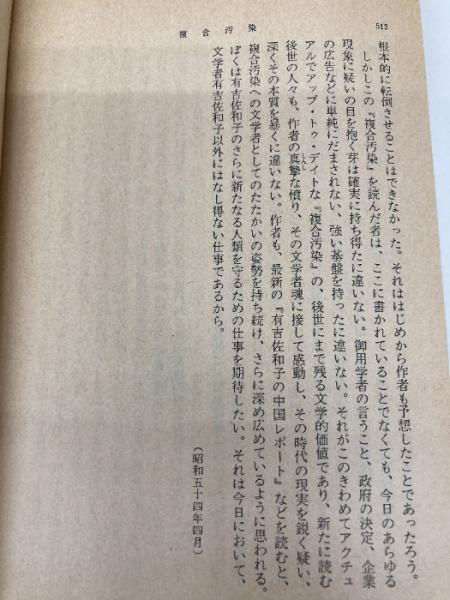 複合汚染
512
根本的に転倒させることはできなかった。それははじめから作者も予想したことであったろう。
しかしこの『複合汚染』を読んだ者は、ここに書かれていることでなくても、今日のあらゆる
現象に疑いの目を抱く芽は確実に持ち得たに違いない。御用学者の言うこと、政府の決定、企業
の広告などに単純にだまされない、強い基盤を持ったに違いない。それがこのきわめてアクチュ
アルでアップ・トゥ・デイトな『複合汚染』の、後世にまで残る文学的価値であり、新たに読む
後世の人々も、作者の真摯な憤り、その文学者魂に接して感動し、その時代の現実を鋭く疑い、
深くその本質を暴くに違いない。作者も、最新の『有吉佐和子の中国レポート』などを読むと、
複合汚染への文学者としてのたたかいの姿勢を持ち続け、さらに深め広めているように思われる。
ぼくは有吉佐和子のさらに新たなる人類を守るための仕事を期待したい。それは今日において、
文学者有吉佐和子以外にはなし得ない仕事であるから。
(昭和五十四年四月)